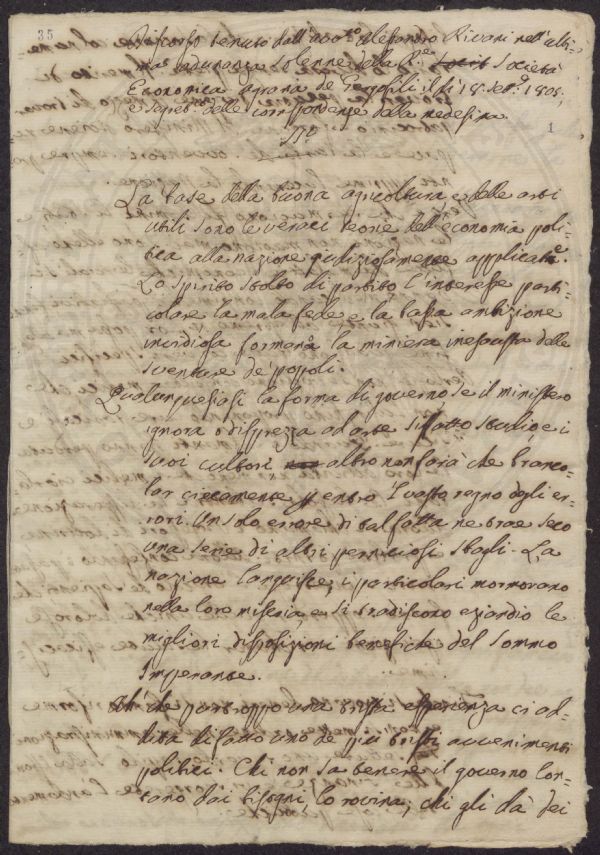 35
Discorso tenuto dall' Avv.to Alessandro Rivani nell' ulti-
ma adunanza solenne della R.e Società
Economica agraria de Georgofili il dì 18. Set.e 1805,
e Segret.o delle corrispondenze della medesima.
1
La base della buona agricoltura e delle arti
utili sono le veraci teorie dell' economia poli-
tica alla nazione giudiziosamente applicate.
Lo spirito stolto di partito l'interesse parti-
colare la mala fede e la bassa ambizione
insidiosa formano la miniera inesausta delle
sventure de popoli.
Qualunque siasi la forma di governo se il ministero
ignora o disprezza ad arte siffatto studio, e i
suoi cultori altro non farà che branco-
lar ciecamente entro l'vasto regno degli er-
rori. Un solo errore di tal fatta ne trae seco
una serie di altri perniciosi sbagli. La
nazione languisce, i particolari mormorano
nella loro miseria, e si tradiscono eziandio le
migliori disposizioni benefiche del sommo
Imperante.
Ah! che purtroppo una trista esperienza ci ad-
dita di fatto uno de più tristi avvenimenti
politici. Chi non sa tenere il governo lon-
tano dai bisogni, lo rovina; chi gli dà dei